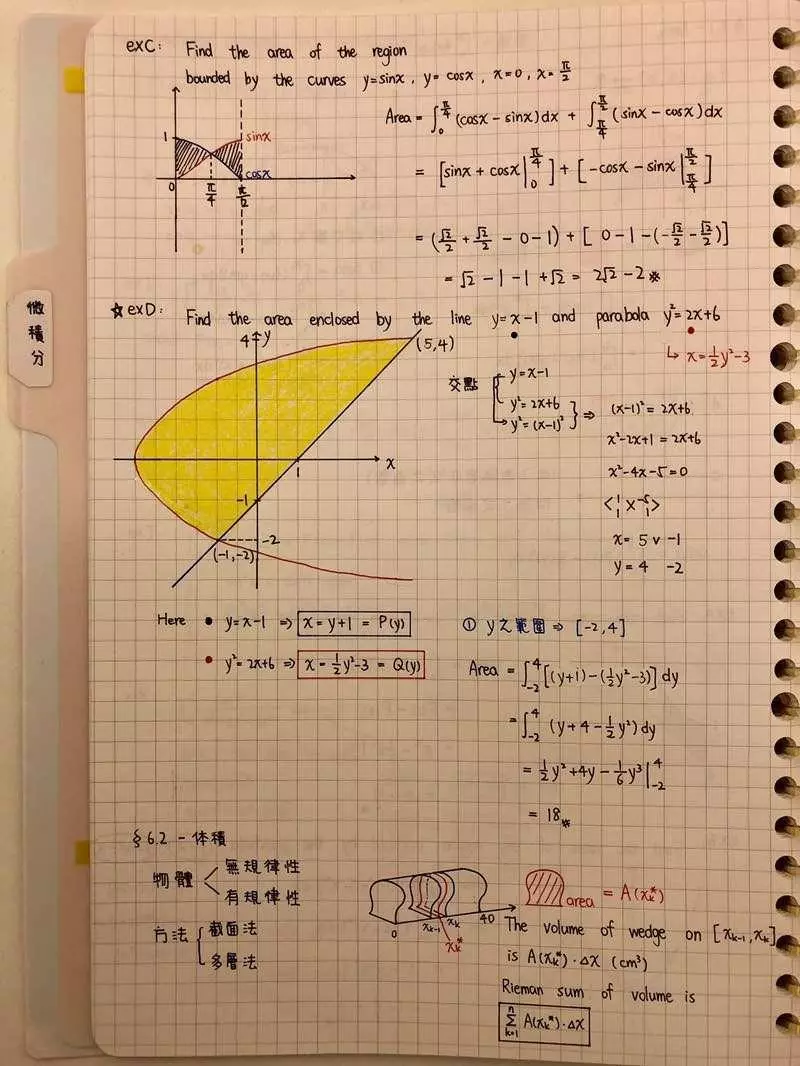 微積分
exC: Find the area of the region
bounded by the curves y=sinx, y=cosx, x=0, x=π/2
1
sinx
cosx
0
π/4
π/2
Area = ∫₀^{π/4} (cosx − sinx)dx + ∫_{π/4}^{π/2} (sinx − cosx)dx
= [sinx + cosx |₀^{π/4}] + [−cosx − sinx |_{π/4}^{π/2}]
= (√2/2 + √2/2 − 0 − 1) + [0 − 1 − (−√2/2 − √2/2)]
= √2 − 1 − 1 + √2 = 2√2 − 2 ※
☆exD: Find the area enclosed by the line y=x−1 and parabola y²=2x+6
↳ x=½y²−3
4
y
(5,4)
x
1
−1
−2
(−1,−2)
交點
y=x−1
y²=2x+6
y²=(x−1)²
⇒ (x−1)²=2x+6
x²−2x+1=2x+6
x²−4x−5=0
<1 1 × −5 1>
x= 5 ∨ −1
y= 4 −2
Here • y=x−1 ⇒ x=y+1=P(y)
• y²=2x+6 ⇒ x=½y²−3=Q(y)
① y之範圍 ⇒ [−2,4]
Area = ∫₋₂⁴ [(y+1)−(½y²−3)] dy
= ∫₋₂⁴ (y+4−½y²) dy
= ½y²+4y−⅙y³ |₋₂⁴
= 18 ※
§6.2 - 体積
物體 < 無規律性
有規律性
方法 { 截面法
多層法
0
xₖ₋₁
xₖ
40
xₖ*
area = A(xₖ*)
The volume of wedge on [xₖ₋₁, xₖ]
is A(xₖ*)·Δx (cm³)
Rieman sum of volume is
∑ₖ₌₁ⁿ A(xₖ*)·Δx